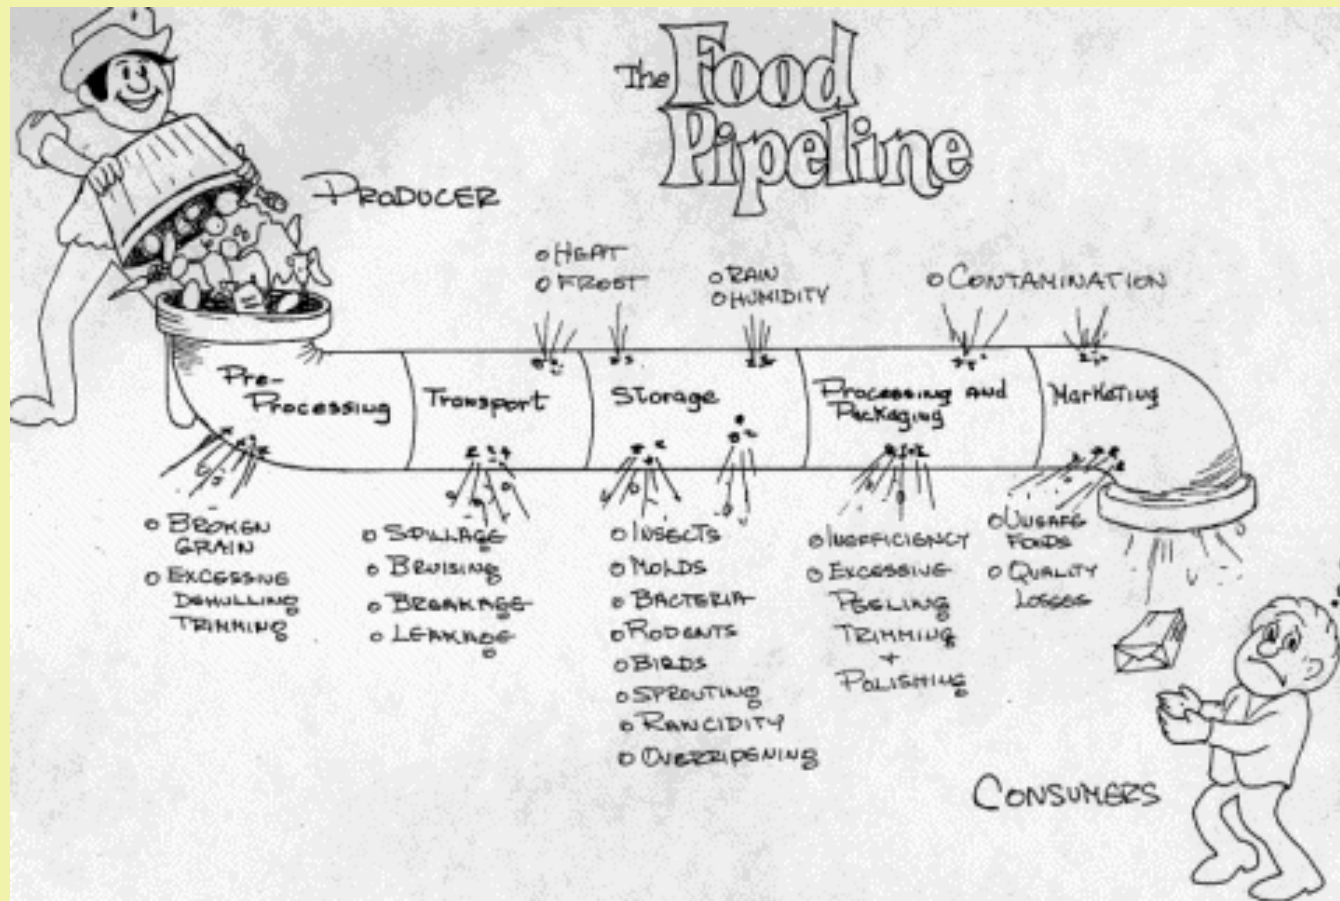 The Food
Pipeline
PRODUCER
o HEAT
o FROST
o RAIN
o HUMIDITY
o CONTAMINATION
Pre-
Processing
Transport
Storage
Processing and
Packaging
Marketing
o BROKEN
GRAIN
o EXCESSIVE
DEHULLING
TRIMMING
o SPILLAGE
o BRUISING
o BREAKAGE
o LEAKAGE
o INSECTS
o MOLDS
o BACTERIA
o RODENTS
o BIRDS
o SPROUTING
o RANCIDITY
o OVERRIPENING
o INEFFICIENCY
o EXCESSIVE
PEELING
TRIMMING
+
POLISHING
o UNSAFE
FOODS
o QUALITY
LOSSES
CONSUMERS